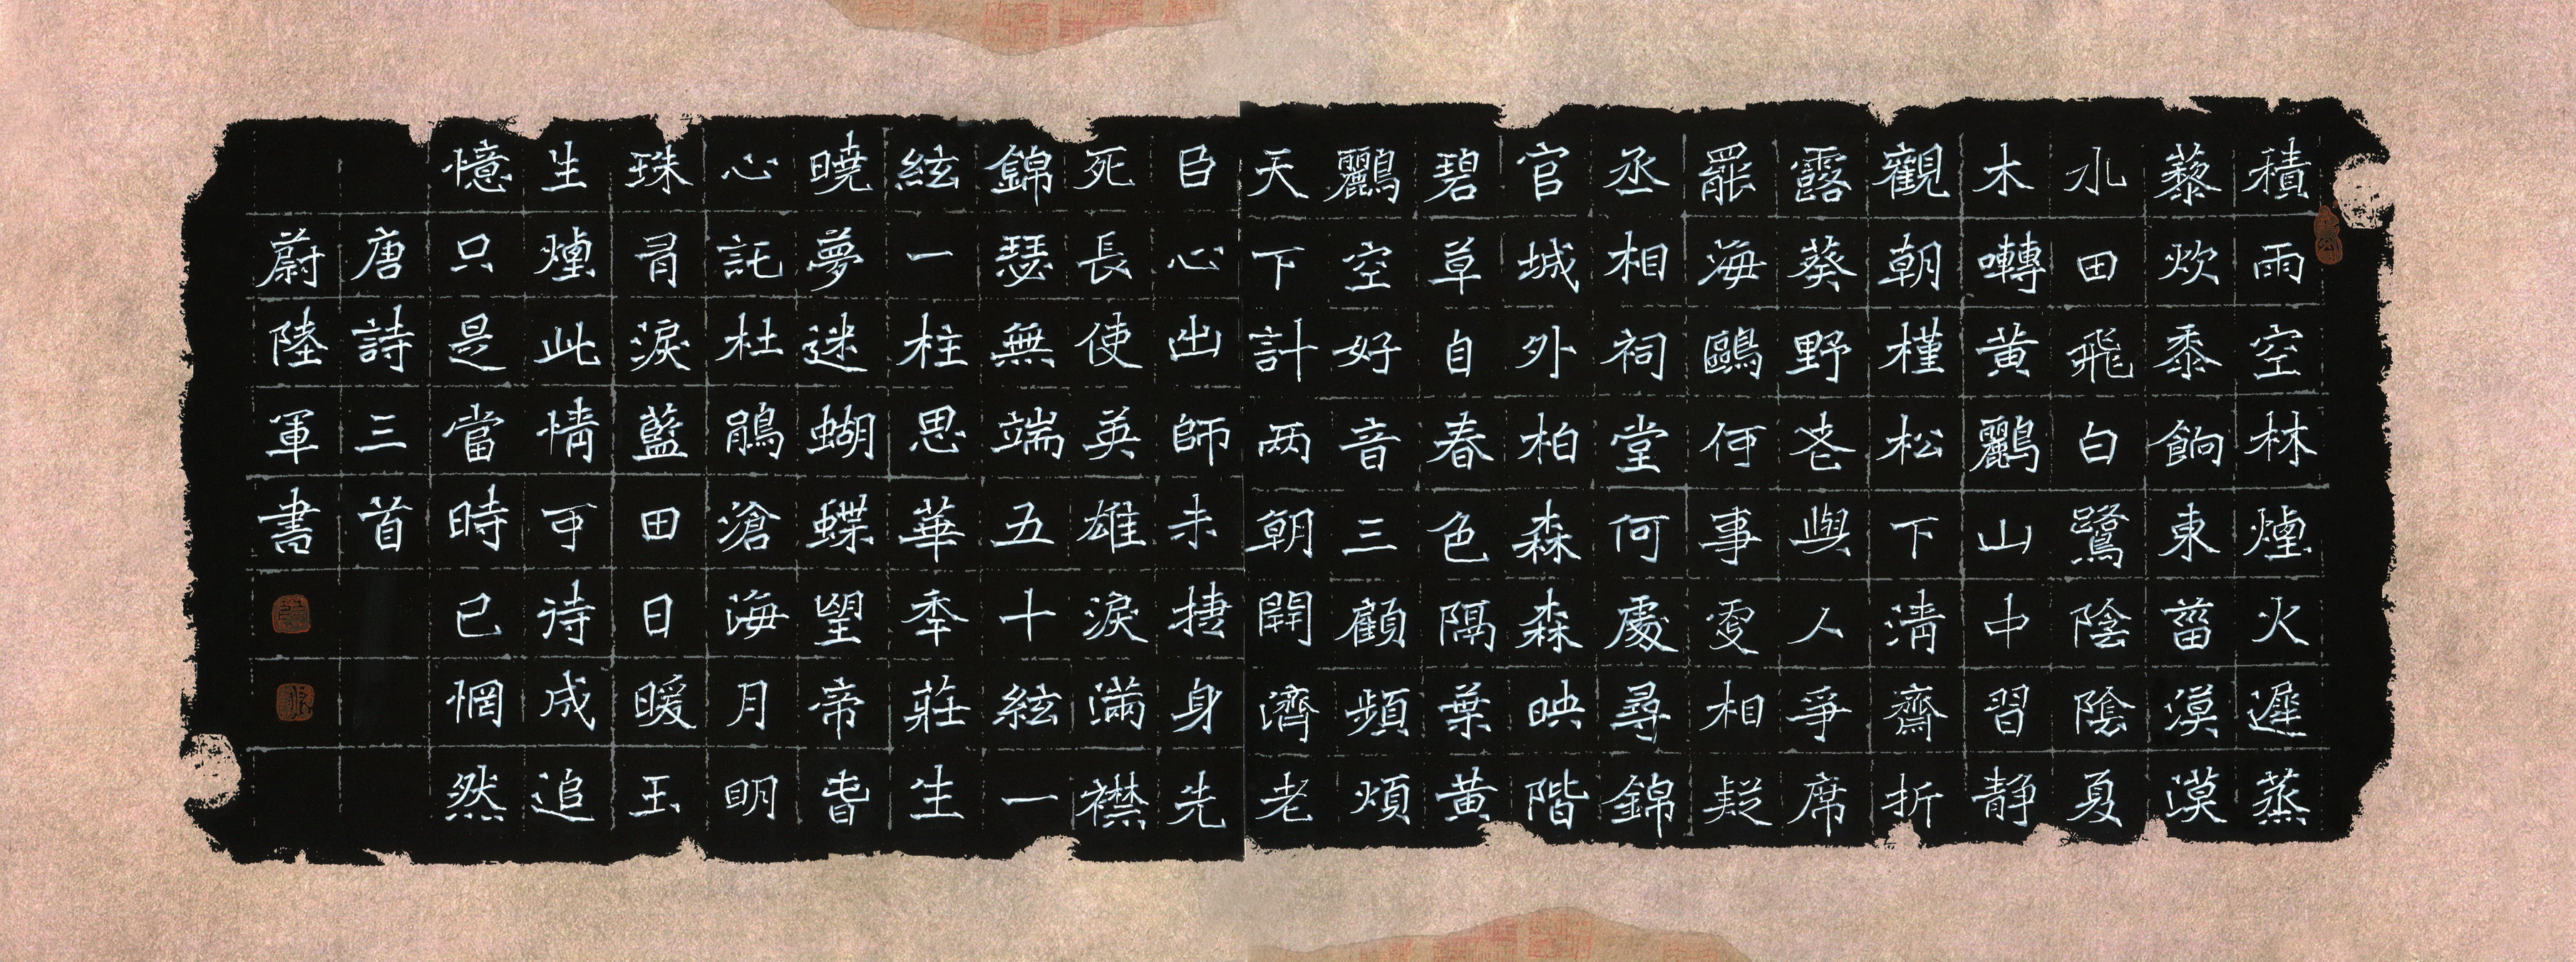 積雨空林煙火遲蒸
藜炊黍餉東菑漠漠
水田飛白鷺陰陰夏
木囀黃鸝山中習靜
觀朝槿松下清齋折
露葵野老與人爭席
罷海鷗何事更相疑
丞相祠堂何處尋錦
官城外柏森森映階
碧草自春色隔葉黃
鸝空好音三顧頻煩
天下計两朝開濟老
臣心出師未捷身先
死長使英雄淚滿襟
錦瑟無端五十絃一
絃一柱思華秊莊生
曉夢迷蝴蝶望帝春
心託杜鵑滄海月明
珠有淚藍田日暖玉
生煙此情可待成追
憶只是當時已惘然
唐詩三首
蔚陸軍書